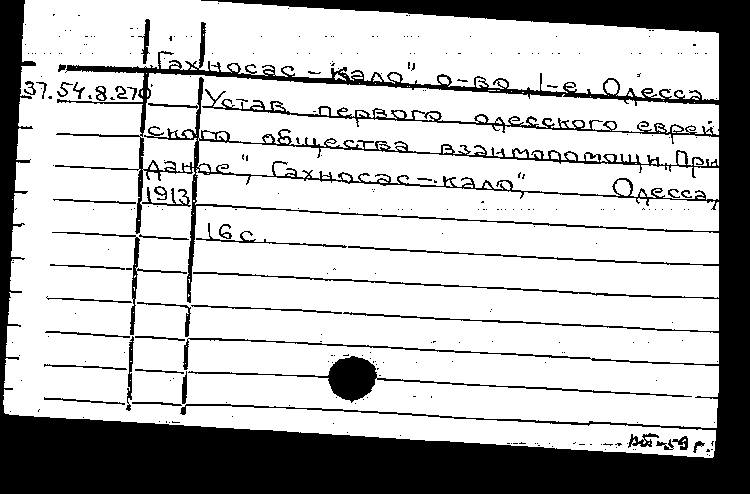 „Гахносас-кало", о-во, 1-е. Одесса
37.54.8.270 Устав первого одесского еврей-
ского общества взаимопомощи „При
даное", „Гахносас-кало", Одесса,
1913
16 с.